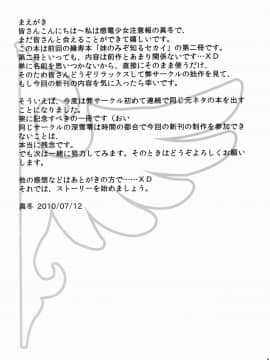 まえがき
皆さんこんにちは～私は感電少女注意報の真冬で、
まだ皆さんと会えることができて嬉しいです。
この本は前回の練寿本「妹のみぞ知るセカイ」の第二冊です。
第二冊といっても、内容は前作とあまり関係ないです…ＸＤ
単に名前を思いつかないから、直接にそのまま使うだけ、
そのため皆さんどうぞリラックスして弊サークルの拙作を見て、
もし今回の新刊の内容を気に入ったら幸いです。
そういえば、今度は弊サークル初めて連続で同じ元ネタの本を出す
ことになりました。
実に記念すべきの一冊です（おい
同じサークルの深雪零は時間の都合で今回の新刊の制作を参加でき
ないことは、
本当に残念です。
でも次は一緒に努力してみます。そのときはどうぞよろしくお願い
します。
他の感想などはあとがきの方で……ＸＤ
それでは、ストーリーを始めましょう。
真冬 2010/07/12